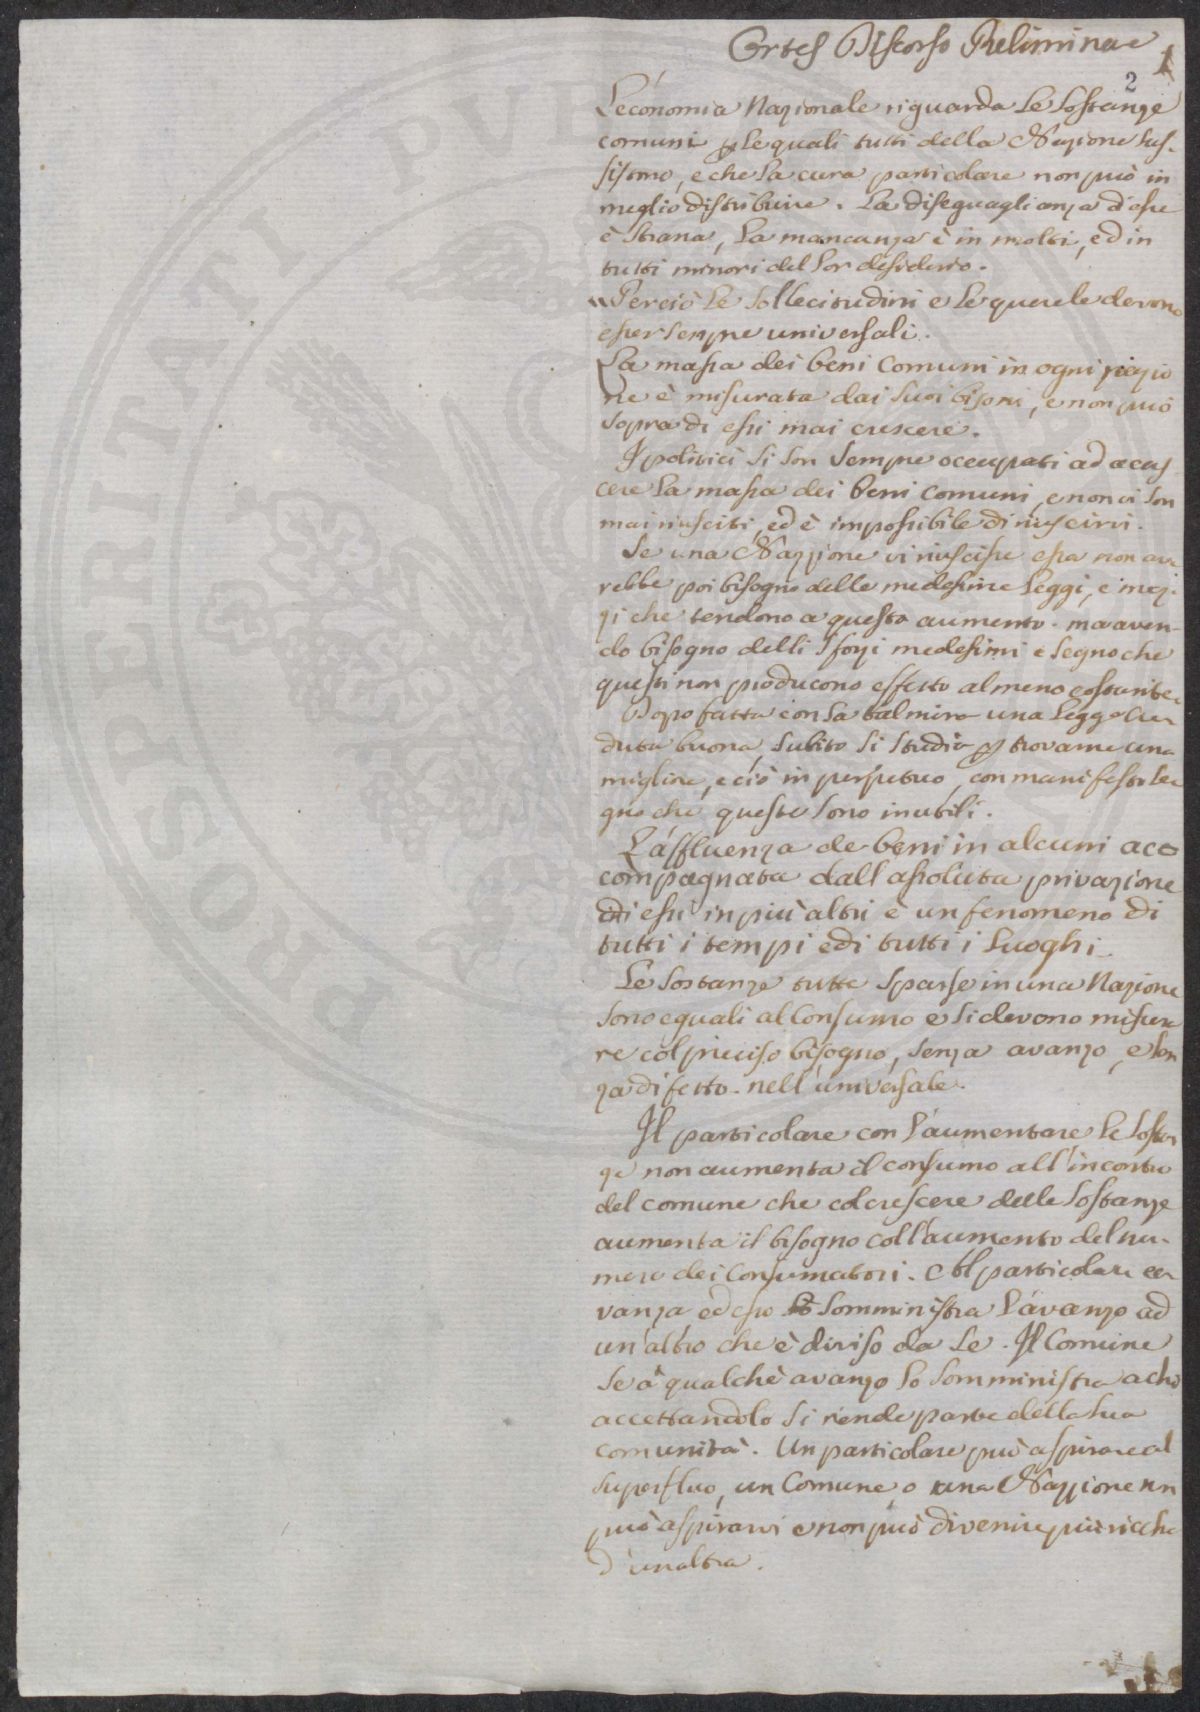 Ortes Discorso Preliminare 1
2
L'economia Nazionale riguarda le sostanze
comuni p le quali tutti della Nazione sus-
sistono, e che la cura particolare non può in
meglio distribuire. La diseguaglianza d'esse
è strana, la mancanza è in molti, ed in
tutti minori del lor desiderio.
Perciò le sollecitudini e le querele devono
esser sempre universali.
La massa dei beni comuni in ogni nazio
ne è misurata dai suoi bisoni, e non può
sopra di essi mai crescere.
I politici si son sempre occupati ad acres
cere la massa dei beni comuni, e non vi son
mai riusciti, ed è impossibile di riuscirvi.
Se una Nazzione vi riuscisse essa non av
rebbe poi bisogno delle medesime leggi, e mez
zi che tendono a questo aumento. ma aven-
do bisogno delli sforzi medesimi è segno che
questi non producono effetto almeno costante.
Dopo fatta con la tal mira una legge cre
duta buona, subito si studia p trovarne una
migliore, e ciò in perpetuo, con manifesto se
gno che queste sono inutili.
L'affluenza de beni in alcuni acc
compagnata dall'assoluta privazione
di essi in più altri è un fenomeno di
tutti i tempi e di tutti i luoghi.
Le sostanze tutte sparse in una Nazione
sono eguali al consumo e si devono misura
re col preciso bisogno, senza avanzo, e sen
za difetto. nell'universale.
Il particolare con l'aumentare le sostan
ze non aumenta il consumo all'incontro
del comune che col crescere delle sostanze
aumenta il bisogno coll'aumento del nu-
mero dei consumatori. Al particolare
vanza ed esso somministra l'avanzo ad
un'altro che è diviso da se. Il Comune
se à qualche avanzo lo somministra a chi
accettandolo si rende parte della sua
comunità. Un particolare può aspirare al
superfluo, un Comune, o una Nazzione non
può aspirarvi e non può divenire più ricche
d'unaltra.
PUB